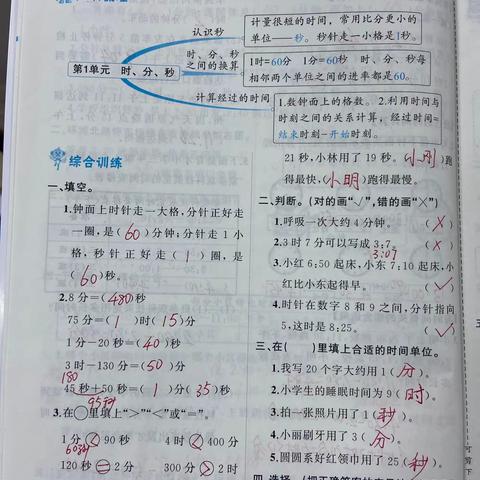 认识秒
计量很短的时间，常用比分更小的
单位——秒。秒针走一小格是1秒。
第1单元 时、分、秒
时、分、秒
之间的换算
1时=60分 1分=60秒 时、分、秒每
相邻两个单位之间的进率都是60。
计算经过的时间
1.数钟面上的格数。2.利用时间与
时刻之间的关系计算，经过时间=
结束时刻-开始时刻。
综合训练
一、填空。
1.钟面上时针走一大格，分针正好走
一圈，是(60)分钟；分针走1小
格，秒针正好走(1)圈，是
(60)秒。
2.8分=(480)秒
75分=(1)时(15)分
1分-20秒=(40)秒
3时-130分=(50)分
180
45秒+50秒=(1)分(35)秒
95秒
3.在○里填上“>”“<”或“=”。
1分<90秒 4时<400分
60秒
120秒=2分 300分>2时
21秒，小林用了19秒。(小刚)跑
得最快，(小明)跑得最慢。
二、判断。(对的画“√”，错的画“×”)
1.呼吸一次大约4分钟。 (×)
2.3时7分可以写成3:7。 (×)
3:07
3.小红6:50起床，小东7:10起床，小
红比小东起得早。 (√)
4.时针在数字8和9之间，分针指向
5，这时是8:25。 (√)
三、在( )里填上合适的时间单位。
1.我写20个字大约用1(分)。
2.小学生的睡眠时间为9(时)。
3.拍一张照片用了1(秒)。
4.小丽刷牙用了3(分)。
5.圆圆系好红领巾用了25(秒)。